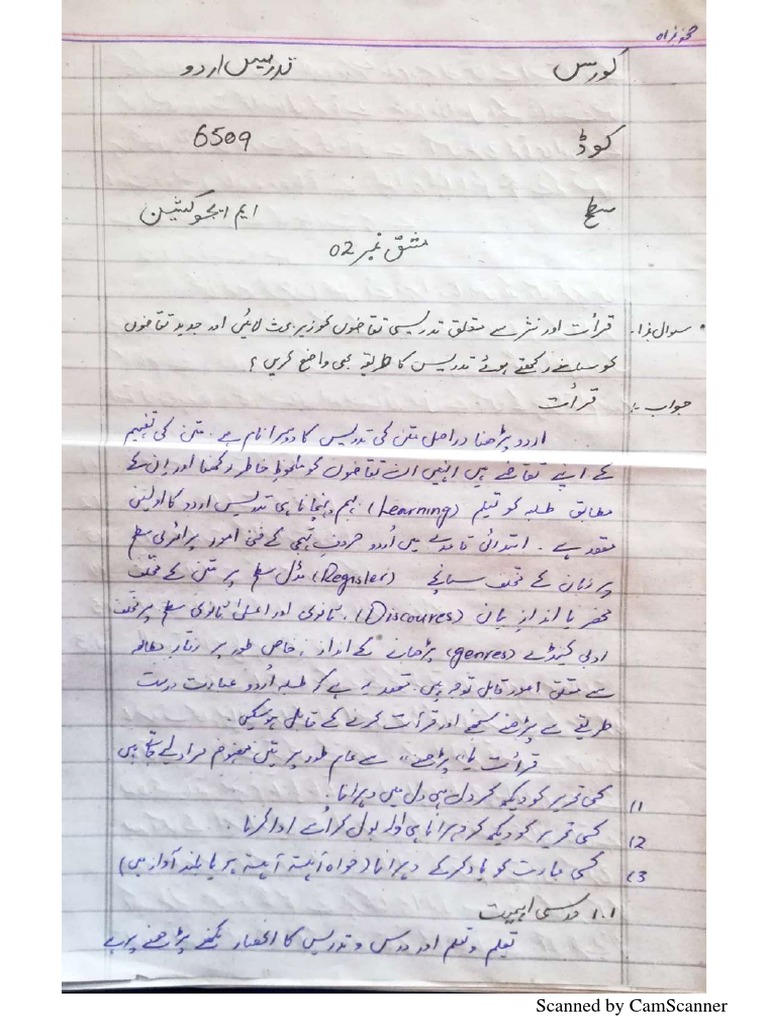 کورس تدریس اردو
کوڈ 6509
سطح ایم ایجوکیشن
مشق نمبر 02
سوال نمبر 1. قرأت اور نثر سے متعلق تدریسی تقاضوں کو زیر بحث لائیں اور جدید تقاضوں
کو سامنے رکھتے ہوئے تدریس کا طریقہ بھی واضح کریں؟
جواب :- قرأت
اردو پڑھنا دراصل متن کی تدریس کا دوسرا نام ہے. متن کی تفہیم
کے اپنے تقاضے ہیں انہیں ان تقاضوں کو ملحوظ خاطر رکھنا اور ان کے
مطابق طلبہ کو تعلیم (Learning) بہم پہنچانا ہی تدریس اردو کا اولین
مقصد ہے. ابتدائی قاعدے میں اُردو حروف تہجی کے فنی امور پرائمری سطح
پر زبان کے مختلف سانچے (Register) مڈل سطح پر متن کے مختلف
یا انداز بیان (Discoures). ثانوی اور اعلیٰ ثانوی سطح پر مختلف
ادبی (genres) پڑھانے کے انداز، خاص طور پر رفتار مطالعہ
سے متعلق امور قابل توجہ ہیں. مقصد یہ ہے کہ طلبہ اُردو عبارت درست
طریقے سے پڑھنے سمجھنے اور قرأت کرنے کے قابل ہو سکیں.
قرأت یا "پڑھنے" سے عام طور پر تین مفہوم مراد لیے جاتے ہیں
1) کسی تحریر کو دیکھ کر دل ہی دل میں دہرانا.
2) کسی تحریر کو دیکھ کر دہرانا ہی بول کر اُسے ادا کرنا.
3) کسی عبارت کو یاد کر کے دہرانا (خواہ آہستہ آہستہ ہو یا بلند آواز میں)
1.1 درسی اہمیت
تعلیم و تعلم اور درس و تدریس کا انحصار لکھنے پڑھنے پر ہے
Scanned by CamScanner